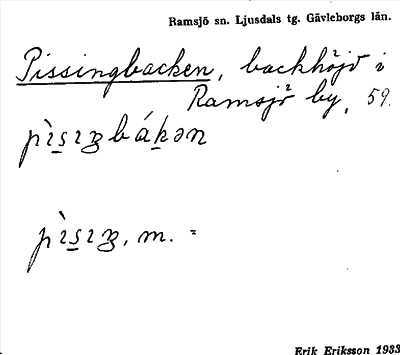 Ramsjö sn. Ljusdals tg. Gävleborgs län.
Pissingbacken, backhöjd i
Ramsjö by, 59.
pìsɪŋbákən
pìsɪŋ, m. =
Erik Eriksson 1933